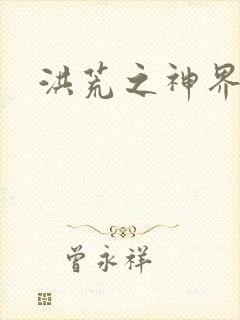 洪荒之神界
曾永祥